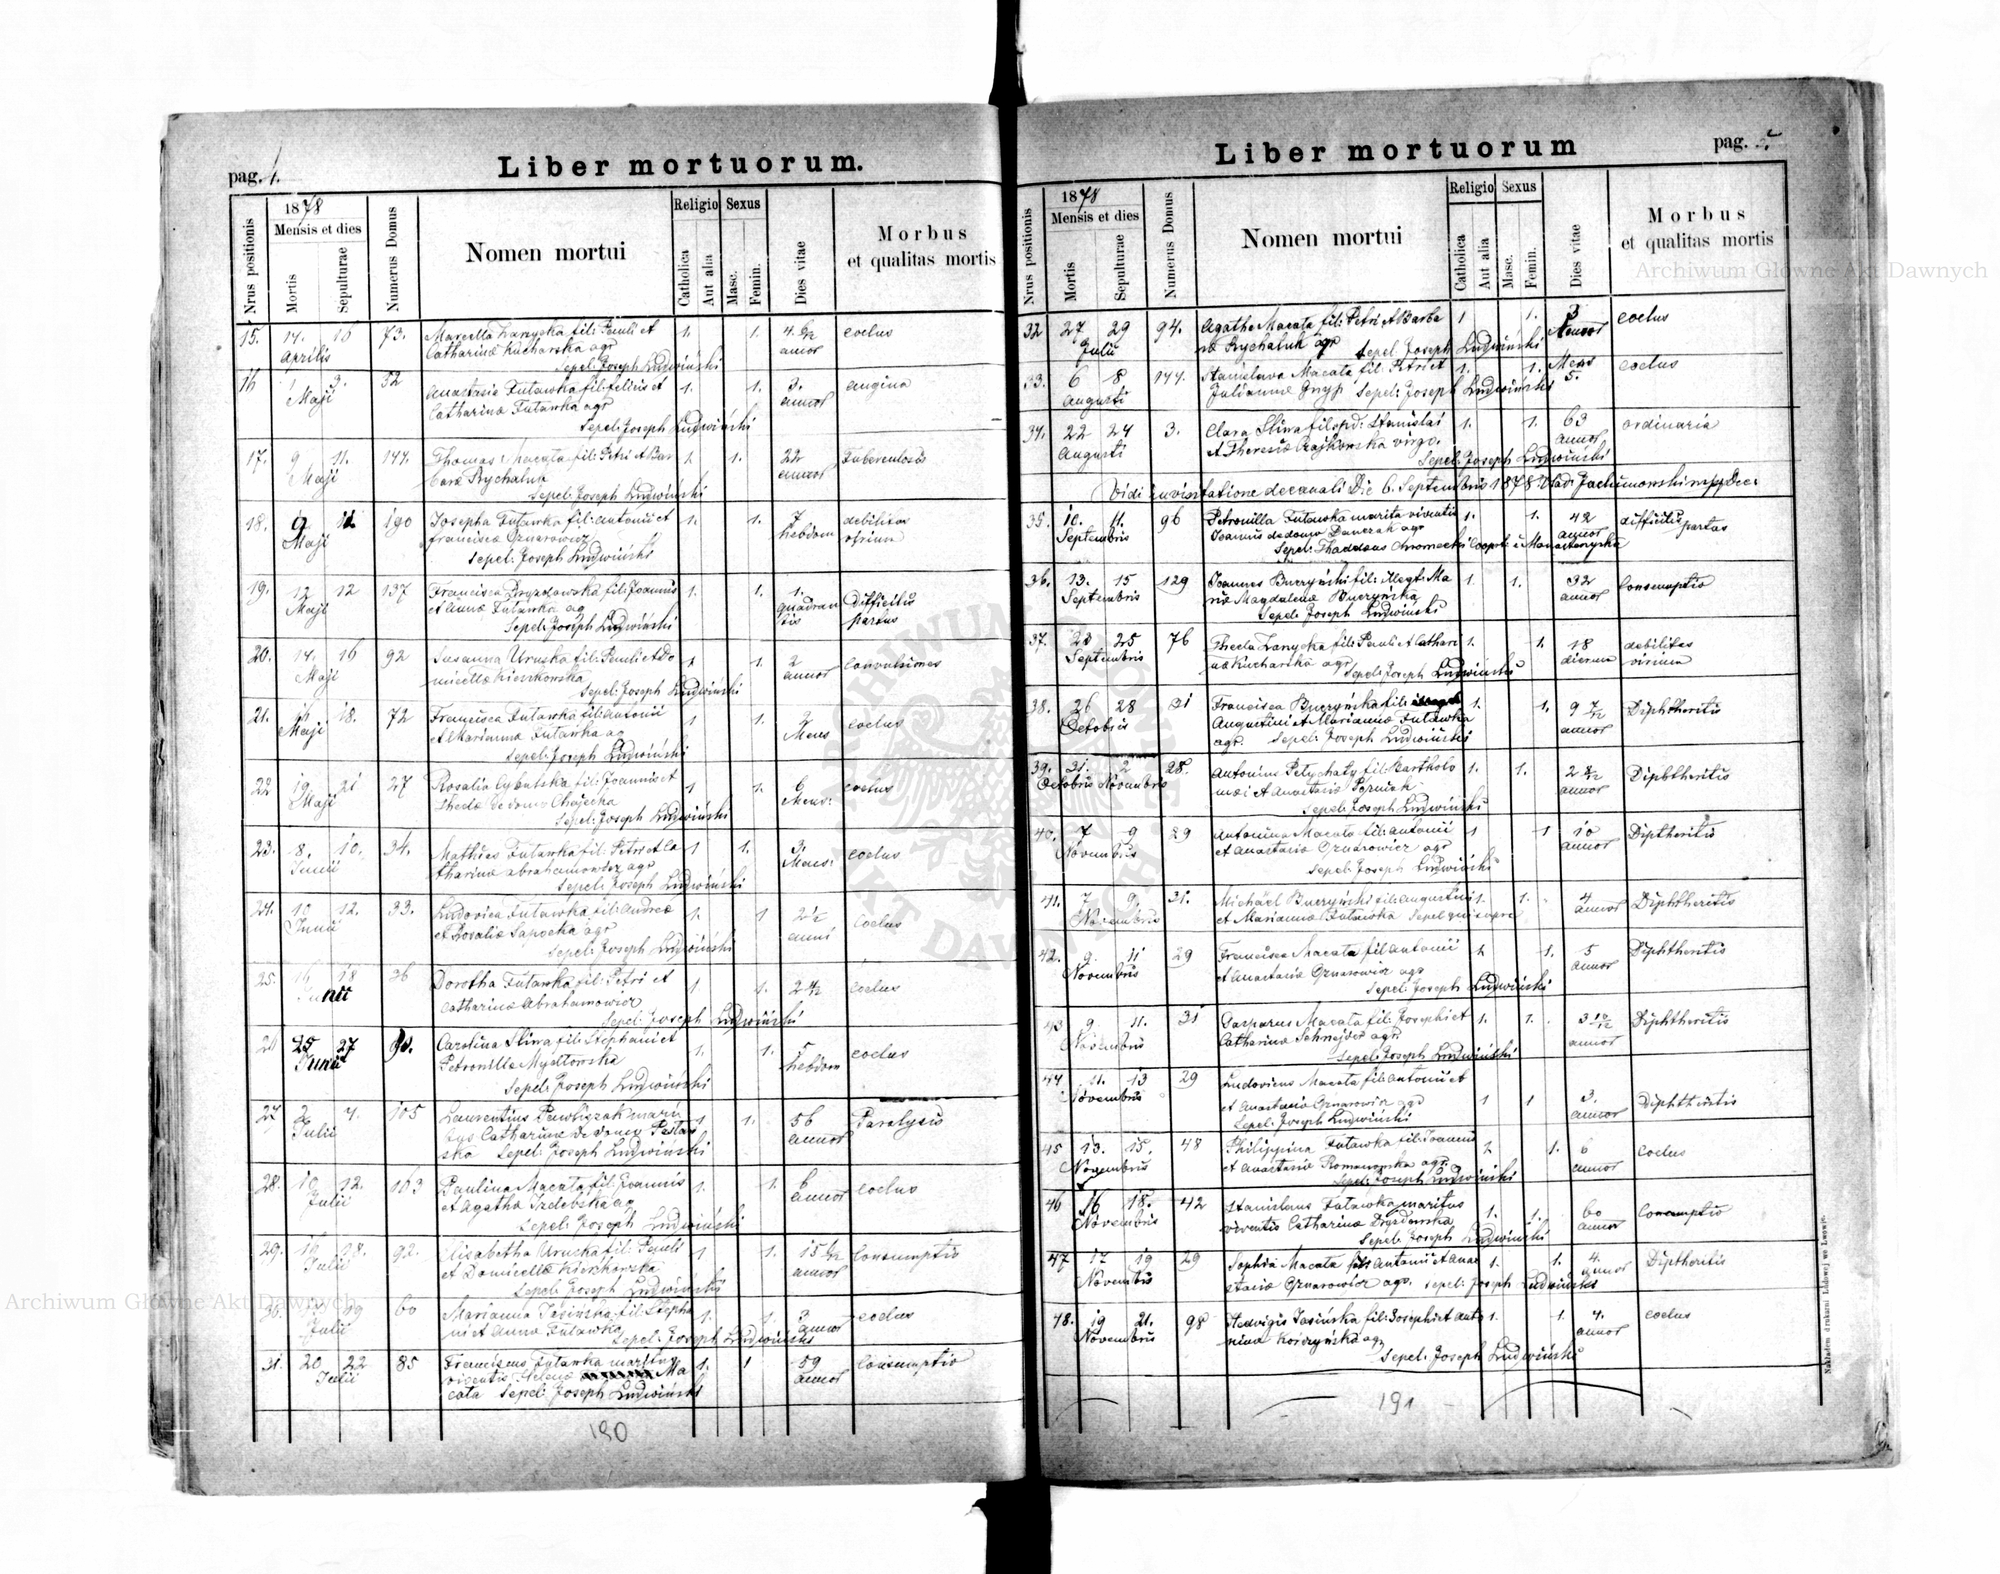 pag. 4.
Liber mortuorum.
Nrus positionis
1878
Mensis et dies
Mortis
Sepulturae
Numerus Domus
Nomen mortui
Religio
Catholica
Aut alia
Sexus
Masc.
Femin.
Dies vitae
Morbus
et qualitas mortis
15. 14. 16 73. Marcella Zanycka fil: Pauli et 1. 1. 4 coclus
Aprilis Catharinæ Kucharska agr annor
Sepel: Joseph Ludwiński
16 1 3. 52 Anastasia Futawka fil: Felicis et 1. 1. 3. angina
Maji Catharinæ Futawka agr annor
Sepel: Joseph Ludwiński
17. 9 11. 144. Thomas Macata fil: Petri et Bar 1. 1. 22 Tuberculosis
Maji baræ Rychaluk annor
Sepel: Joseph Ludwiński
18. 9 11 190 Josepha Futawka fil: Antonii et 1. 1. 7 debilitas
Maji Franciscæ Oznarowicz hebdom virium
Sepel: Joseph Ludwiński
19. 12 12 137 Francisca Drozdowska fil: Joannis 1. 1. 1. Difficilis
Maji et Annæ Futawka ag quadran partus
Sepel: Joseph Ludwiński
20. 14. 16 92 Susanna Uruska fil: Pauli et Do 1 1. 2 Convulsiones
Maji micellæ Kierzkowska annor
Sepel: Joseph Ludwiński
21. 16 18. 72 Francisca Futawka fil: Antonii 1 1. 9 coclus
Maji et Marianna Futawka ag Mens
Sepel: Joseph Ludwiński
22 19 21 27 Rosalia Cybulska fil: Joannis et 1 1. 6 coclus
Maji Theclæ de domo Chajecka Mens:
Sepel: Joseph Ludwiński
23. 8. 10. 34. Mathias Futawka fil: Petri et Ca 1 1. 3. coclus
Junii tharinæ Abrahamowicz agr Mens:
Sepel: Joseph Ludwiński
24. 10 12. 33. Ludovica Futawka fil: Andreæ 1. 1 2½ Coclus
Junii et Rosaliæ Sapocka agr anni
Sepel: Joseph Ludwiński
25. 16 18 36 Dorotha Futawka fil: Petri et 1 1. 2 coclus
Junii Catharinæ Abrahamowicz
Sepel: Joseph Ludwiński
26 25 27 Carolina Sliwa fil: Stephani et 1. 1. 5 coclus
Junii Petronillæ Mysltowska hebdom
Sepel: Joseph Ludwiński
27 2 4. 105 Laurentius Pawliszak mari 1 1. 56 Paralysis
Julii tus Catharinæ de domo Pastaw annor
ska Sepel: Joseph Ludwiński
28. 10 12. 163 Paulina Macata fil: Joannis 1. 1. 6 coclus
Julii et Agatha Izdebska ag annor
Sepel: Joseph Ludwiński
29. 92. Elisabetha Uruska fil: Pauli 1 1. 15 Consumptio
Julii et Domicellæ Kierzkowska annor
Sepel: Joseph Ludwiński
30. 19 60 Marianna Jasińska fil: Stepha 1. 1. 3 coclus
Julii ni et Anna Futawka annor
Sepel: Joseph Ludwiński
31. 20 22 85 Franciscus Futawka maritus 1. 1 59 Consumptio
Julii viventis Helenæ Ma annor
cata Sepel: Joseph Ludwiński
190
Liber mortuorum
pag. 5.
Nrus positionis
1878
Mensis et dies
Mortis
Sepulturae
Numerus Domus
Nomen mortui
Religio
Catholica
Aut alia
Sexus
Masc.
Femin.
Dies vitae
Morbus
et qualitas mortis
32 27 29 94. Agatha Macata fil: Petri et Barba 1 1. 3 coclus
Julii ræ Rychaluk agr Sepel Joseph Ludwiński annor
33. 6 8 144. Stanislava Macata fil: Petri et 1. 1. Mens coclus
Augusti Juliannæ Gnyp Sepel: Joseph Ludwiński 5.
34. 22 24 3. Clara Sliwa fil: Stanislai 1. 1. 63 ordinaria
Augusti et Theresiæ Rajkowska virgo. annor
Sepel: Joseph Ludwiński
Vidi in visitatione decanali Die 6. Septembris 1878. Vlad: Jachimowski mpp Dec:
35. 10. 11. 96 Petronilla Futawska marita viventis 1. 1. 42 difficilis partus
Septembris Joannis de domo Danczak agr annor
36. 13. 15 129 Joannes Buczyński fil: illegt: Ma 1. 1. 32 Consumptio
Septembris riæ Magdalenæ Buczyńska annor
Sepel: Joseph Ludwiński
37. 23 25 76 Thecla Zanycka fil: Pauli et Cathari 1. 1. 18 debilitas
Septembris næ Kucharska agr dierum virium
Sepel: Joseph Ludwiński
38. 26 28 31 Francisca Buczyńska fil: 1. 1. 9 7/12 Diphtheritis
Octobris Augustini et Mariannæ Futawka annor
agr. Sepel: Joseph Ludwiński
39. 31. 2 28. Antonius Petychaty fil: Bartholo 1. 1. 2 Diphtheritis
Octobris Novembris mæi et Anastasiæ annor
Sepel: Joseph Ludwiński
40. 7 9 29 Antonina Macata fil: Antonii 1 1 10 Diptheritis
Novembris et Anastasiæ Oznarowicz agr annor
Sepel: Joseph Ludwiński
41. 7 9. 31. Michäel Buczyński fil: Augustini 1. 1. 4 Diphtheritis
Novembris et Mariannæ Futawska Sepel qui supra annor
42. 9. 11 29 Francisca Macata fil Antonii 1 1. 5 Diphtheritis
Novembris et Anastasiæ Oznarowicz agr annor
Sepel: Joseph Ludwiński
43 9 11. 31 Gasparus Macata fil: Josephi et 1. 1. 3 10/12 Diphtheritis
Novembris Catharinæ Schnejder agr annor
Sepel: Joseph Ludwiński
44 11. 13 29 Ludovicus Macata fil: Antonii et
Novembris et Anastasiæ Oznarowicz agr 1 1 3. Diphtheritis
Sepel: Joseph Ludwiński annor
45 13. 15. 48 Philippina Futawka fil: Joannis 1 1. 6 coclus
Novembris et Anastasiæ Romanowska agr. annor
Sepel: Joseph Ludwiński
46 16 18. 42 Stanislaus Futawka maritus 1. 1. 60 Consumptio
Novembris viventis Catharinæ Drozdowska annor
Sepel: Joseph Ludwiński
47 17 19 29 Sophia Macata fil: Antonii et Ana 1. 1. 4. Diptheritis
Novembris stasiæ Oznarowicz agr. Sepel: Joseph Ludwiński annor
48. 19 21. 98 Hedvigis Jasińska fil: Josephi et Anto 1. 1. 4. coclus
Novembris ninæ Korczyńska agr annor
Sepel: Joseph Ludwiński
191
Nakładem drukarni Ludowej we Lwowie.
Archiwum Główne Akt Dawnych
Archiwum Główne Akt Dawnych
ARCHIWUM GŁÓWNE AKT DAWNYCH